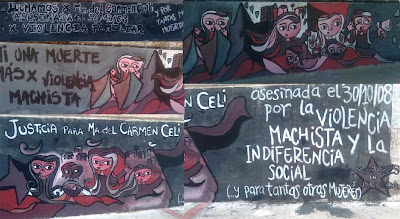 LUCHAMOS X Ma del CARMEN Celi
ASESINADA el 30/10/08
x VIOLENCIA FAMILIAR
y por
tantas
MUJERES
Ti UNA MUERTE
MÁS x VIOLENCIA
MACHiSTA
JUSTiCiA PARA Ma del CARMÉN CELi
N CELi
asesinada el 30/10/08
por la ViOLENCiA
MACHiSTA y la
INDIFERENCiA
SOCiAL
(y para tantas otras MUJERES)